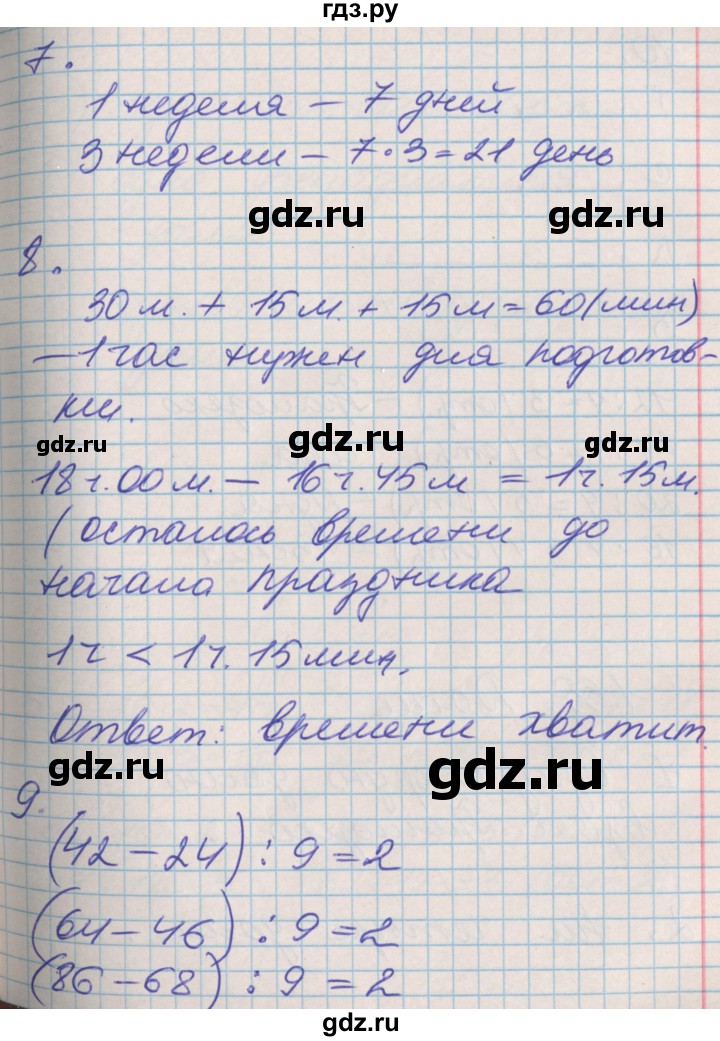 гдз.ру
7.
1 неделя – 7 дней
3 недели – 7·3=21 день
gdz.ru gdz.ru
8.
30 м. + 15 м. + 15 м = 60 (мин)
– 1 час нужен для подготов-
ки.
gdz.ru gdz.ru gdz.ru
18 ч. 00 м. – 16 ч. 45 м = 1 ч. 15 м.
(осталось времени до
начала праздника
1 ч < 1 ч. 15 мин.
Ответ: времени хватит.
gdz.ru gdz.ru
9.
(42 – 24) : 9 = 2
(64 – 46) : 9 = 2
(86 – 68) : 9 = 2
gdz.ru